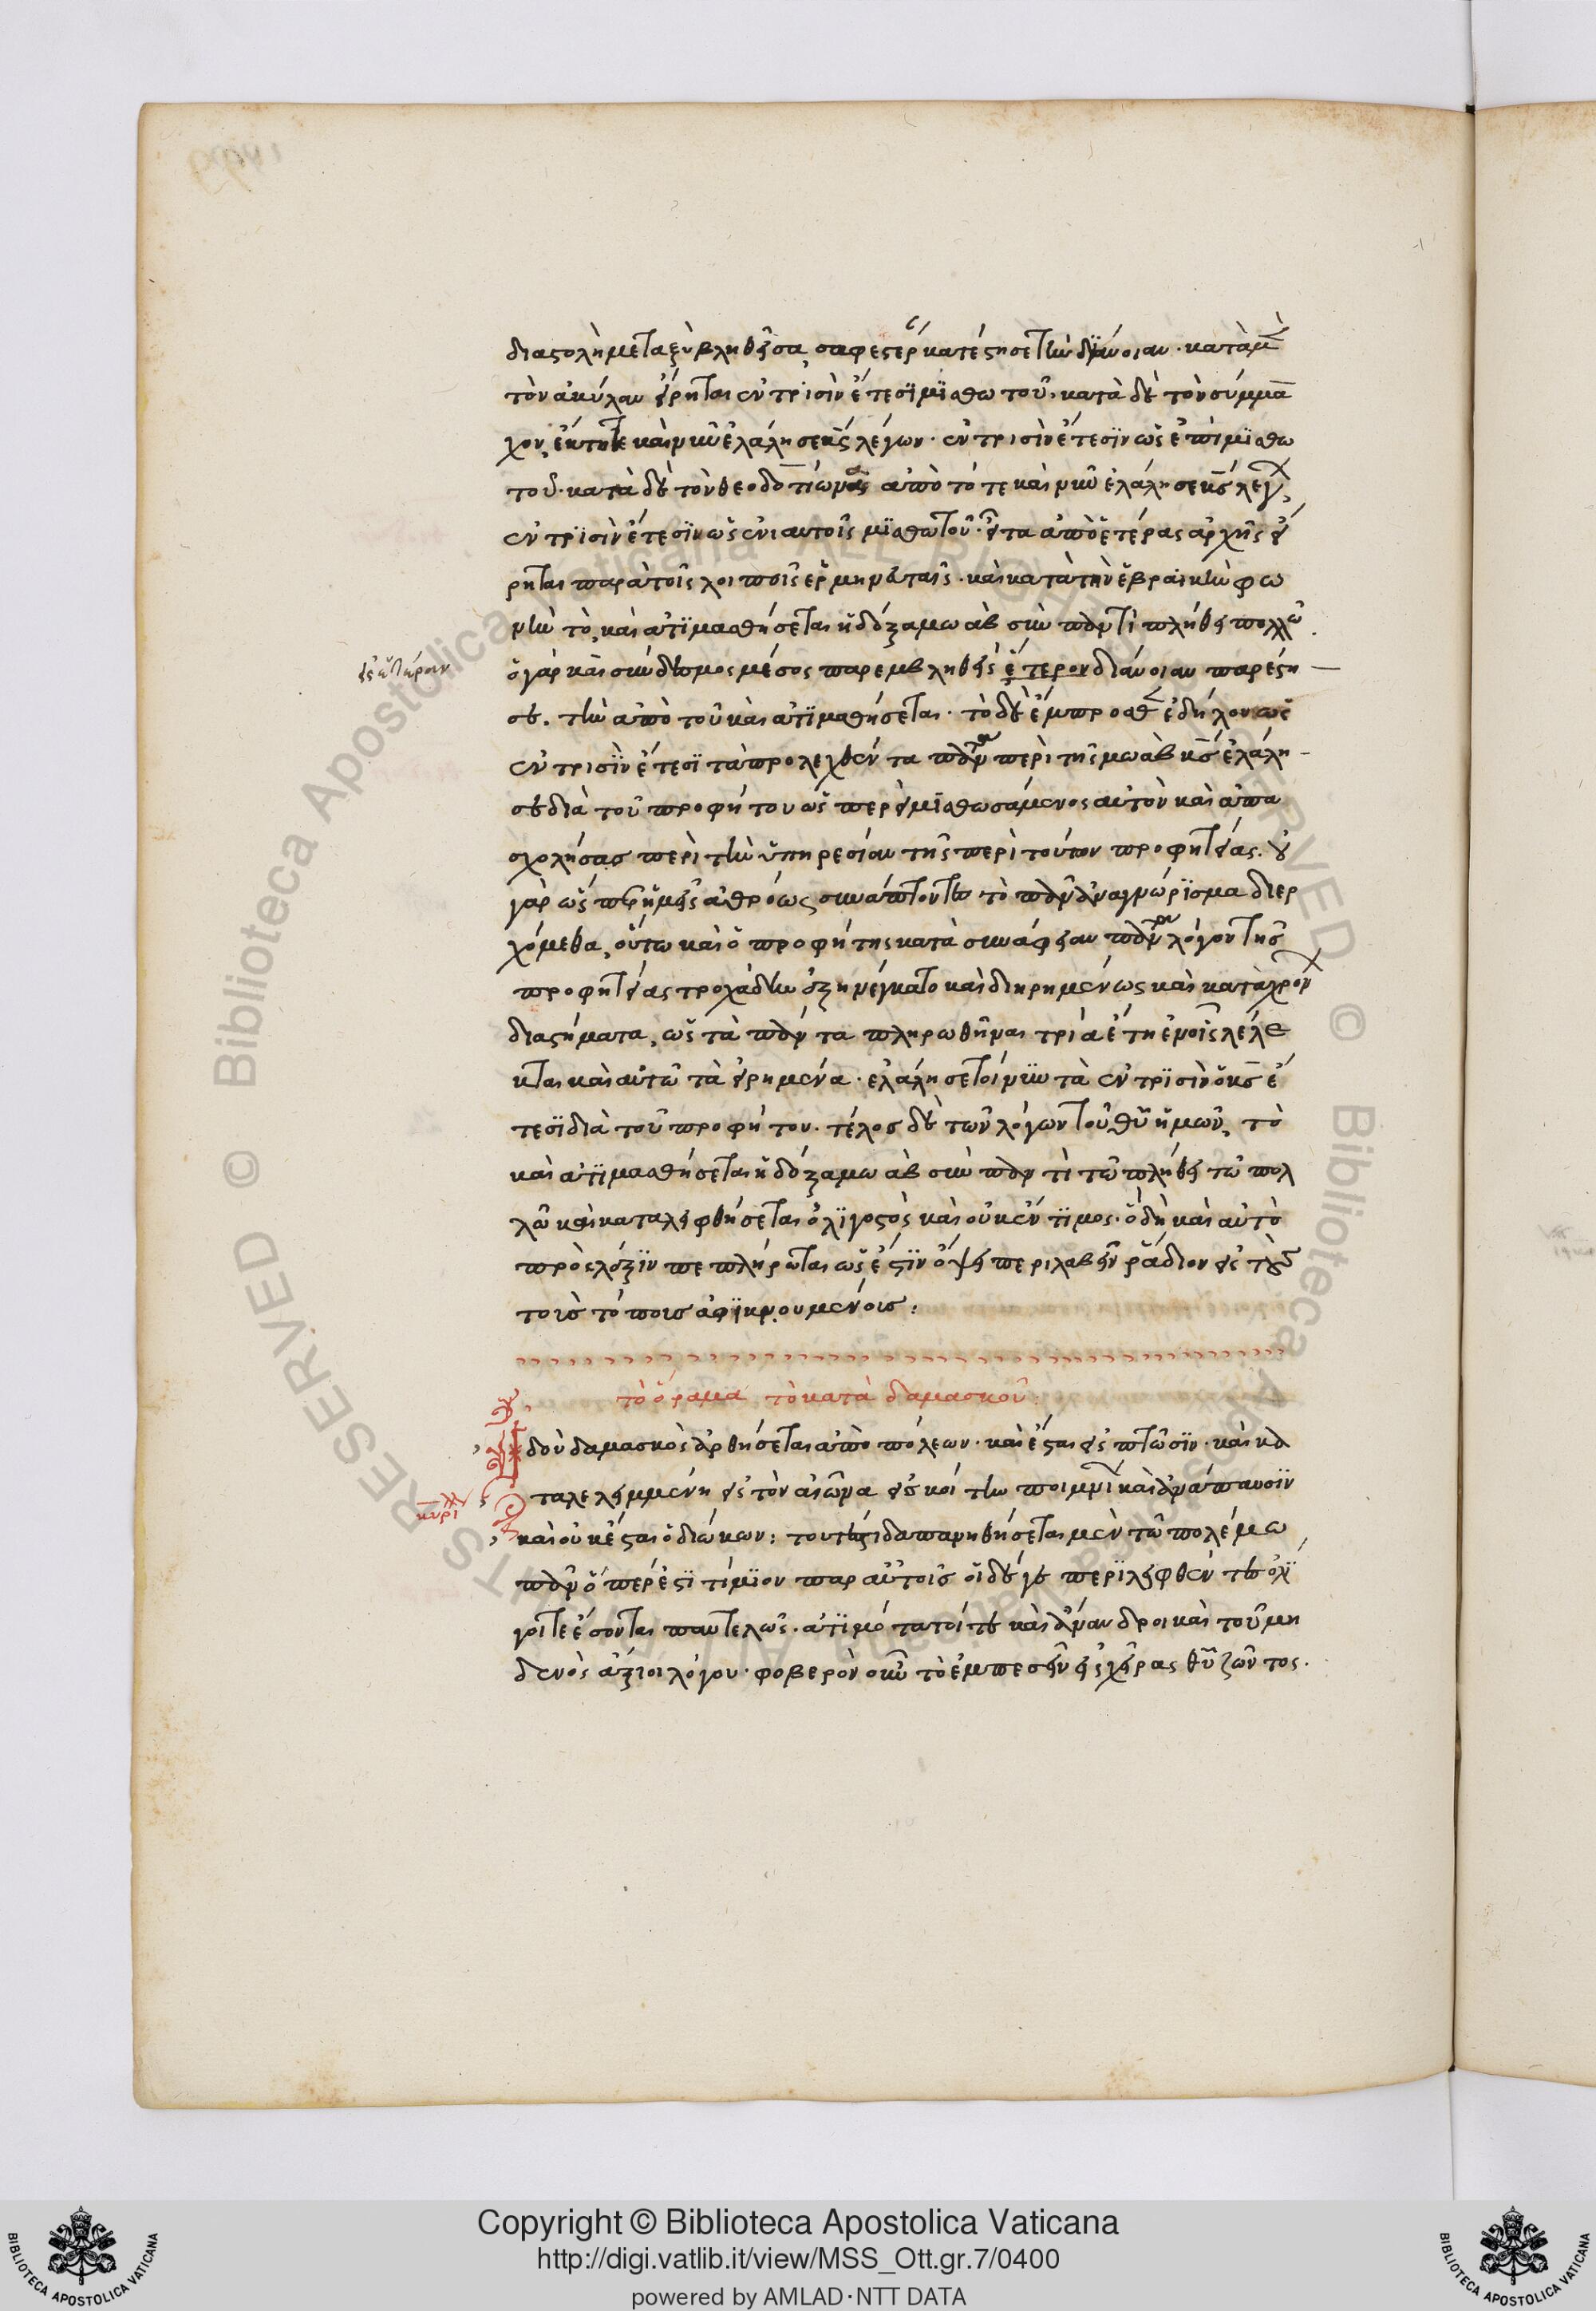 διαστολὴ μεταξὺ βληθεῖσα, σαφεστέραν κατέστησε τὴν διάνοιαν. κατὰ μὲν
τὸν ἀκύλαν εἴρηται ἐν τρισὶν ἔτεσι μισθωτοῦ. κατὰ δὲ τὸν σύμμα
χον, ἔκτοτε καὶ νῦν ἐλάλησε κς λέγων. ἐν τρισὶν ἔτεσιν ὡς ἐπὶ μισθω
τοῦ. κατὰ δὲ τὸν θεοδοτίωνα ἀπὸ τότε καὶ νῦν ἐλάλησε κς λέγων,
ἐν τρισὶν ἔτεσιν ὡς ἐνιαυτοῖς μισθωτοῦ. εἶτα ἀπὸ ἑτέρας ἀρχῆς εἴ
ρηται παρὰ τοῖς λοιποῖς ἑρμηνευταῖς. καὶ κατὰ τὴν ἑβραϊκὴν φω
νὴν τὸ, καὶ ἀτιμασθήσεται ἡ δόξα μωὰβ σὺν παντὶ πλήθει πολλῶ.
εἰς ἑτέραν
ὁ γὰρ καὶ σύνδεσμος μέσος παρεμβληθεὶς ἕτερον διάνοιαν παρέστη
σε. τὴν ἀπὸ τοῦ καὶ ἀτιμασθήσεται. τὸ δὲ ἔμπροσθεν ἐδήλου ὡς
ἐν τρισὶν ἔτεσι τὰ προλεχθέντα πάντα περὶ τῆς μωὰβ κς ἐλάλη
σε διὰ τοῦ προφήτου ὥσπερ εἰ μισθωσάμενος αὐτὸν καὶ ἀπα
σχολήσας περὶ τὴν ὑπηρεσίαν τῆς περὶ τούτων προφητείας. οὐ
γὰρ ὥσπερ ἡμεῖς ἀθρόως συνάπτοντες τὸ πᾶν ἀναγνώρισμα διερ
χόμεθα, οὕτω καὶ ὁ προφήτης κατὰ συνάφειαν πάντα λόγον τῆς
προφητείας τροχάδην ἐξηνέγκατο καὶ διηρημένως καὶ κατὰ χρόνων
διαστήματα, ὡς τὰ πάντα πληρωθῆναι τρία ἔτη ἐν οἷς λέλε
κται καὶ αὐτῶ τὰ εἰρημένα. ἐλάλησε τοίνυν τὰ ἐν τρισὶν ὁ κς ἔ
τεσι διὰ τοῦ προφήτου. τέλος δὲ τῶν λόγων τοῦ θυ ἡμῶν, τὸ
καὶ ἀτιμασθήσεται ἡ δόξα μωὰβ σὺν παντὶ τῶ πλήθει τῶ πολ
λῶ καὶ καταλειφθήσεται ὀλιγοστὸς καὶ οὐκ ἔντιμος. ὃ δὴ καὶ αὐτὸ
πρὸς λέξιν πεπλήρωται ὡς ἔστιν ὄψει περιλαβεῖν ῥάδιον εἰς τοὺς
τοῖς τόποις ἀφικνουμένοις:
τὸ ὅραμα τὸ κατὰ δαμασκοῦ:
δοὺ δαμασκὸς ἀρθήσεται ἀπὸ πόλεων. καὶ ἔσται εἰς πτῶσιν. καὶ κα
ταλελειμμένη εἰς τὸν αἰῶνα εἰς κοίτην ποιμνίων καὶ ἀνάπαυσιν
κυρίλλ
καὶ οὐκ ἔσται ὁ διώκων: τουτέστι δαπανηθήσεται μὲν τῶ πολέμω
πᾶν ὅπερ ἐστὶ τίμιον παρ αὐτοῖς οἱ δέ γε περιλειφθέντες ὀλί
γοι τε ἔσονται παντελῶς. ἀτιμότατοί τε καὶ ἄνανδροι καὶ τοῦ μη
δενὸς ἄξιοι λόγου. φοβερὸν οὖν τὸ ἐμπεσεῖν εἰς χεῖρας θυ ζῶντος.
Copyright © Biblioteca Apostolica Vaticana
http://digi.vatlib.it/view/MSS_Ott.gr.7/0400
powered by AMLAD·NTT DATA